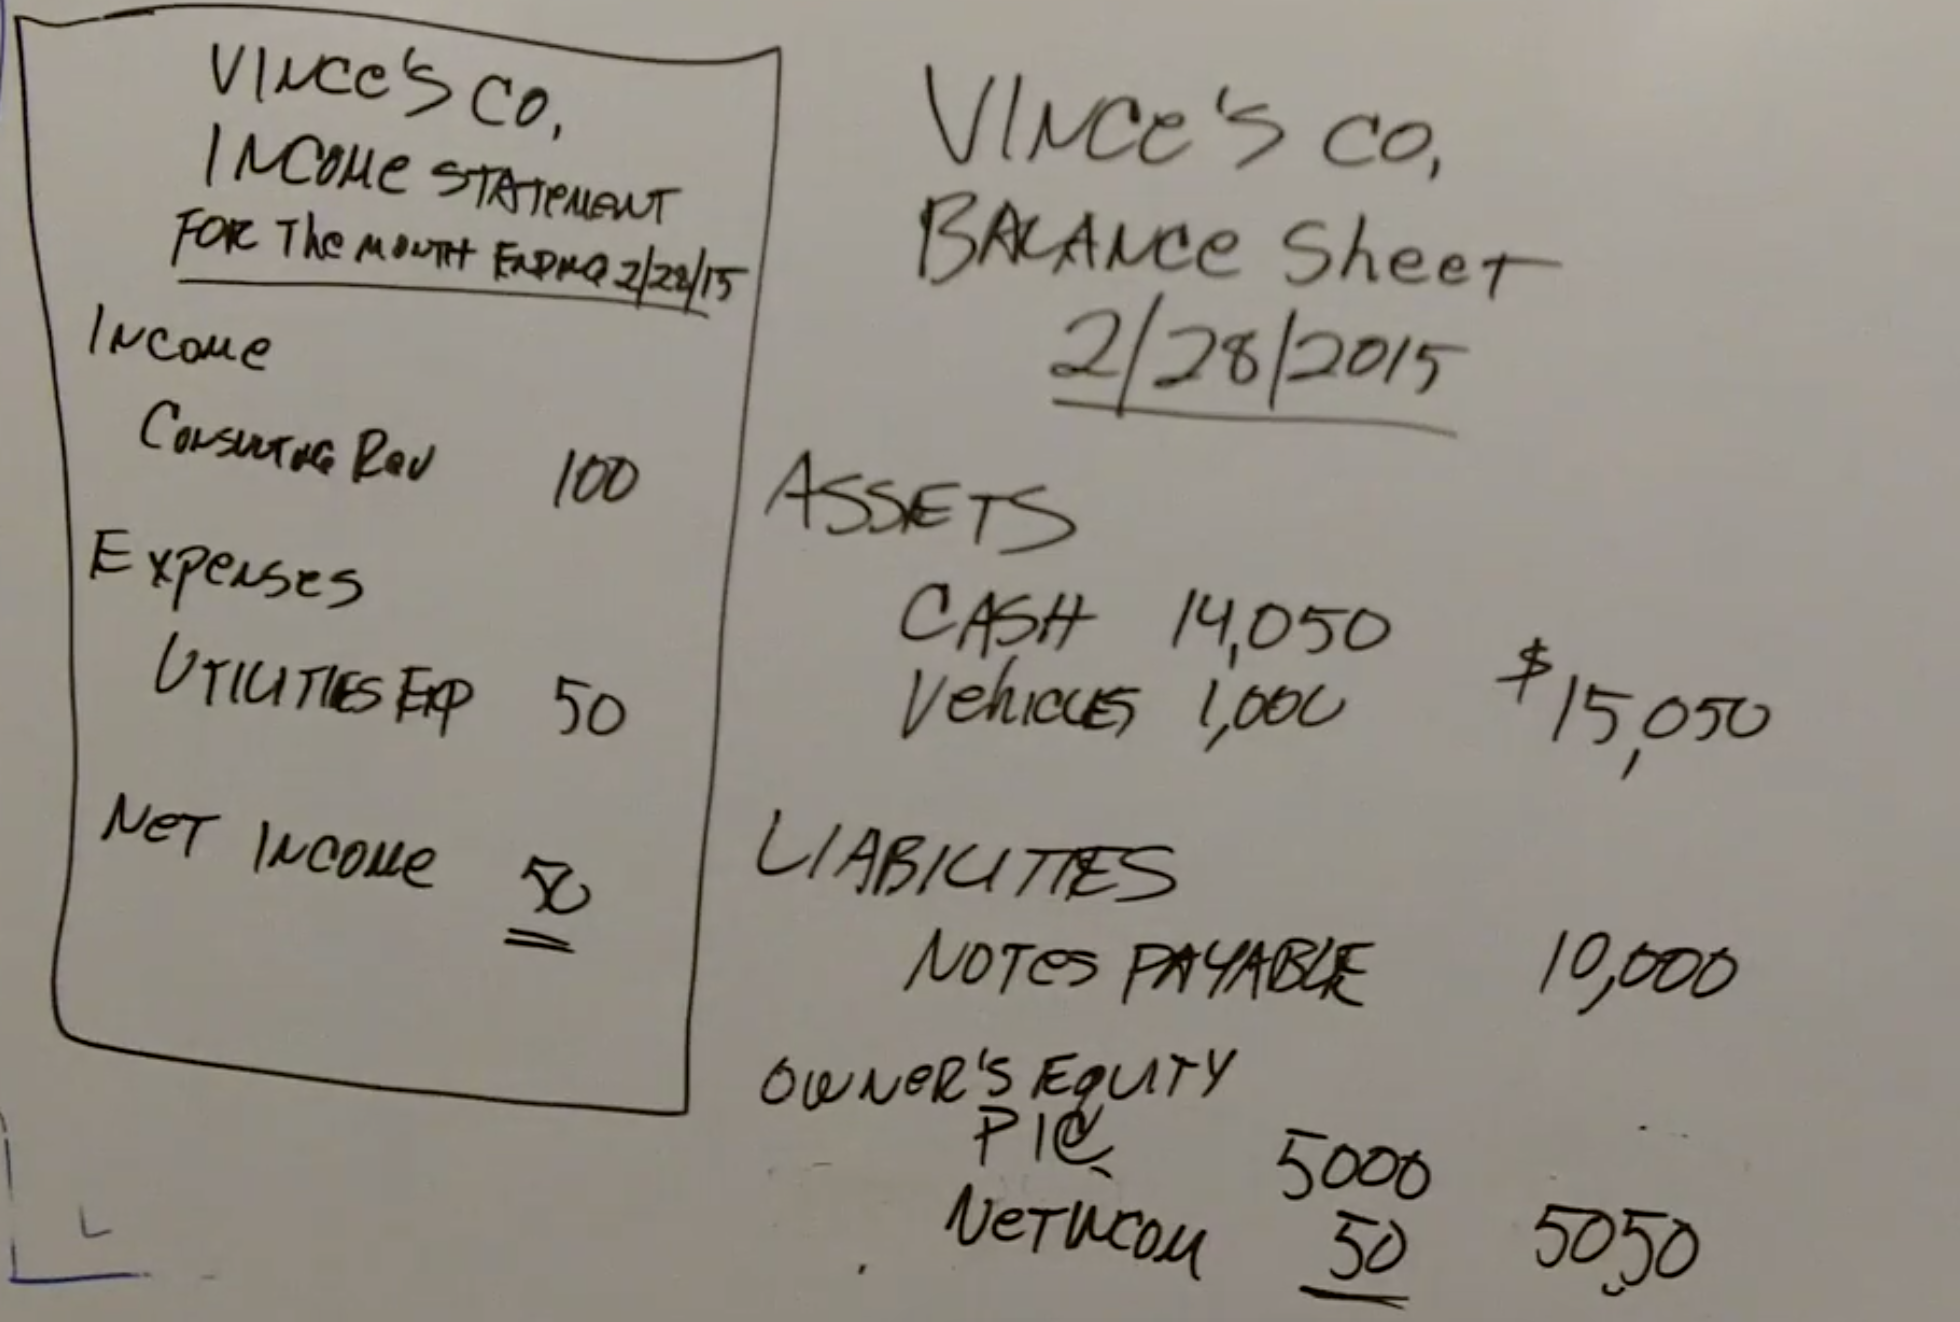 VINCE'S CO,
INCOME STATEMENT
FOR THE MONTH ENDING 2/28/15
INCOME
CONSULTING REV 100
EXPENSES
UTILITIES EXP 50
NET INCOME 50
L
VINCE'S CO,
BALANCE Sheet
2/28/2015
ASSETS
CASH 14,050
Vehicles 1,000 $15,050
LIABILITIES
NOTES PAYABLE 10,000
OWNER'S EQUITY
PIC 5000
NET INCOM 50 5050